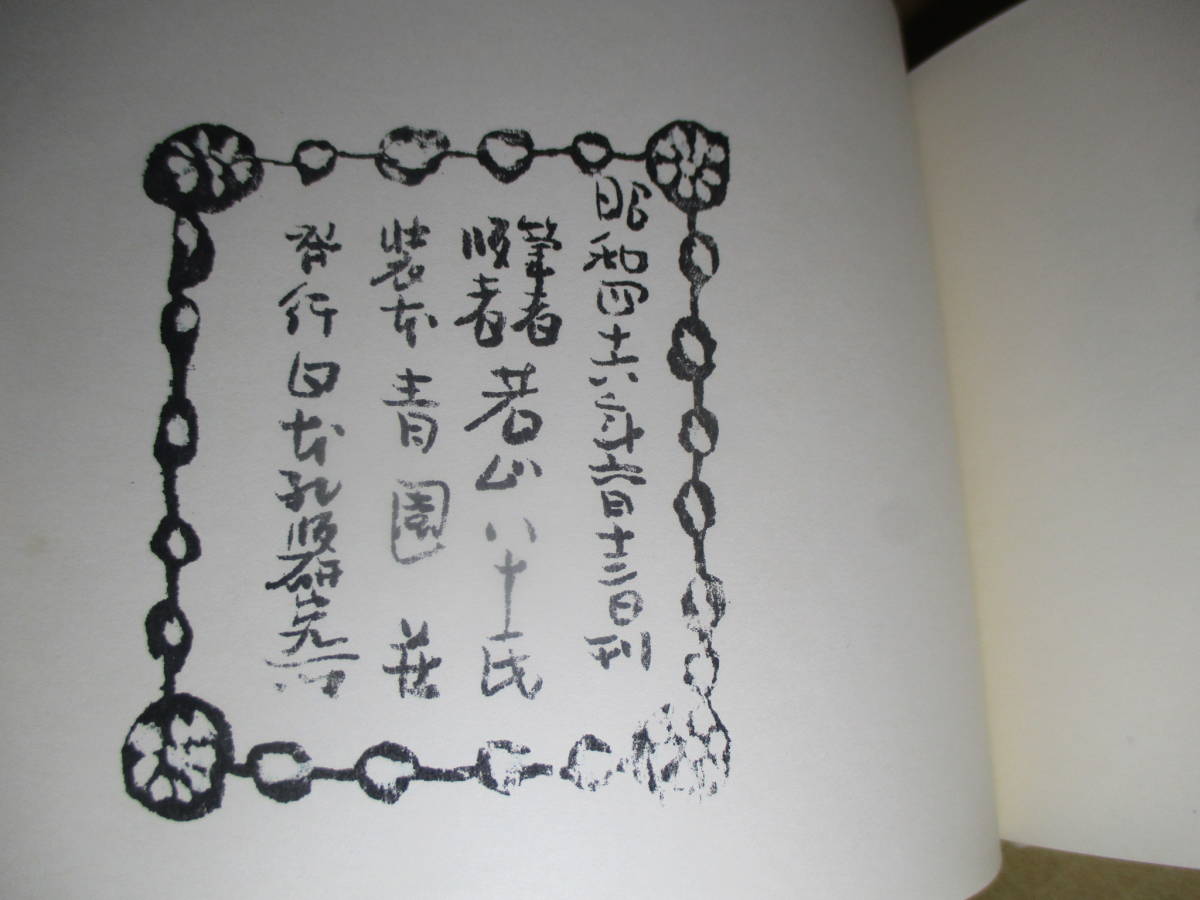 昭和四十六年六月十三日刊
筆者
版者
若山八十氏
装本青園荘
発行日本孔版研究所